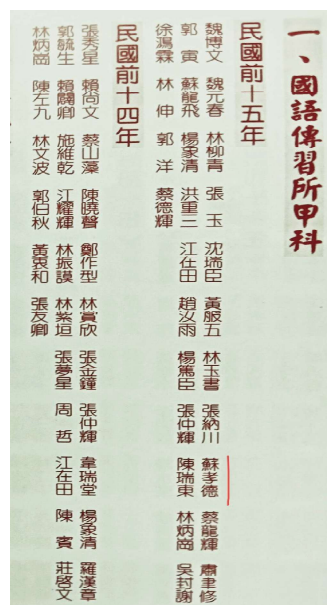 一、國語傳習所甲科
民國前十五年
魏博文 魏元春 林柳青 張玉 沈瑞臣 黃服五 林玉書 張納川 蘇孝德 蔡龍輝 肅聿修
郭寅 蘇龍飛 楊家清 洪重三 江在田 趙汝雨 楊篤臣 張仲輝 陳瑞東 林炳崗 吳封謝
徐鴻霖 林伸 郭洋 蔡德輝
民國前十四年
張秀星 賴尚文 蔡山藻 陳曉聲 鄭作型 林賞欣 張金鐘 張仲輝 韋瑞堂 楊象清 羅漢章
郭毓生 賴闊卿 施維乾 江耀輝 林振謨 林紫垣 張夢星 周哲 江在田 陳賓 莊啓文
林炳崗 陳左九 林文波 郭伯秋 黃衷和 張友卿